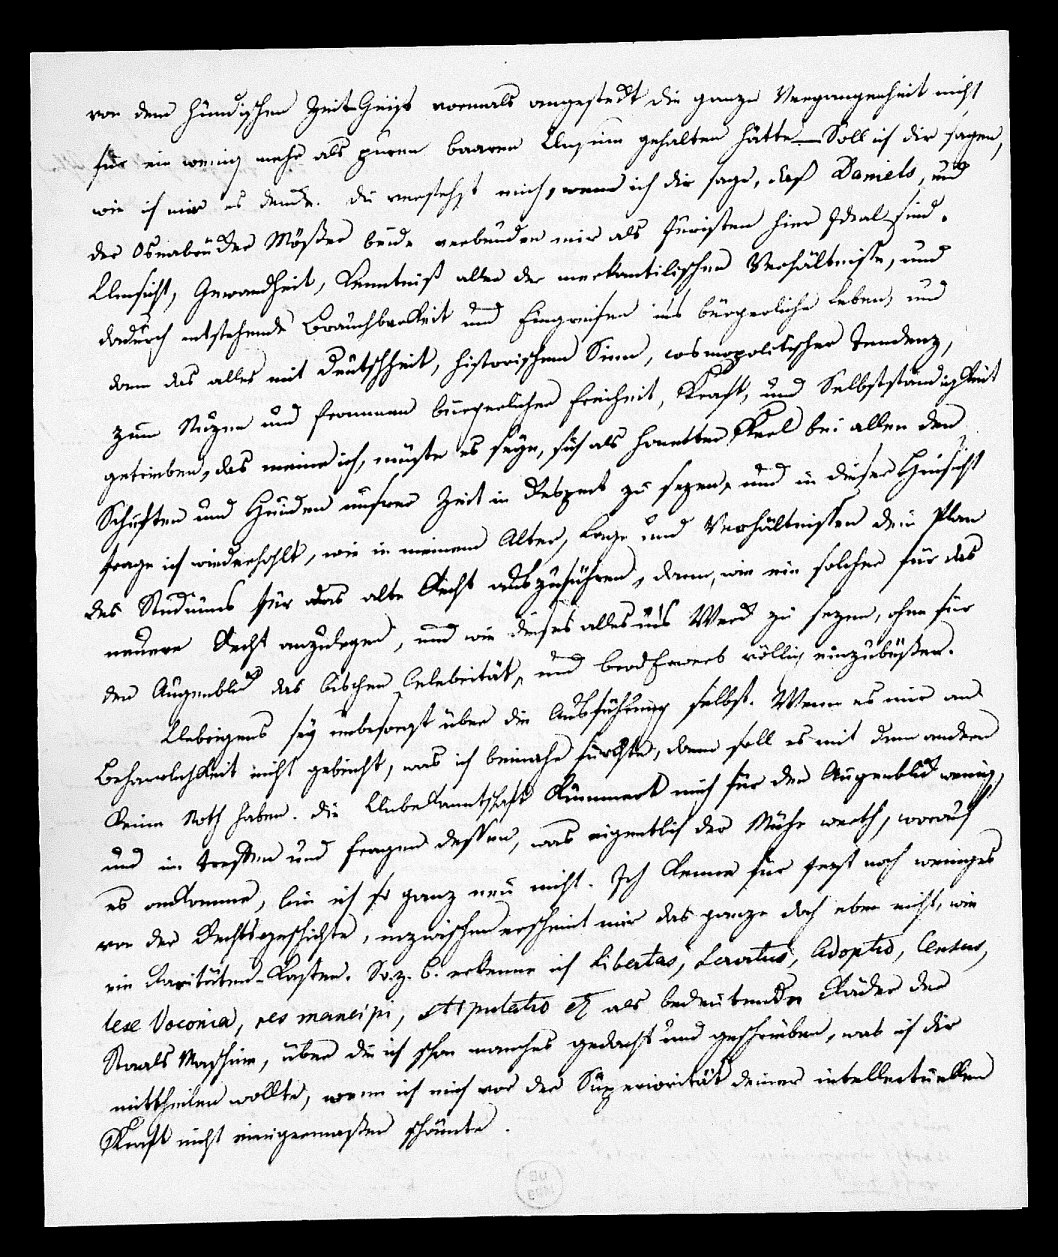 von dem hündischen Zeit-Geist vormals angesteckt die ganze Vergangenheit nicht
für ein wenig mehr als puren baaren Unsinn gehalten hätte – Soll ich dir sagen,
wie ich mir es denke. Du verstehst mich, wenn ich dir sage, daß Daniels, und
der Osnabrücker Mößer beide verbunden mir als Juristen hier Ideal sind.
Umsicht, Gewandheit, Kenntniß aller der merkantilischen Verhältnisse, und
dadurch entstehende Brauchbarkeit und Eingreifen ins bürgerliche Leben, und
dann das alles mit Deutschheit, historischem Sinn, cosmopolitischer Tendenz,
zum Nuzen und Frommen bürgerlicher Freiheit, Kraft, und Selbstständigkeit
getrieben, das meine ich, müßte es seyn, sich als honetter Kerl bei allen den
Schuften und Hunden unsrer Zeit in Respect zu sezen, und in dieser Hinsicht
frage ich wiederhohlt, wie in meinem Alter, Lage und Verhältnissen dein Plan
des Studiums für das alte Recht auszuführen, dann, wie ein solcher für das
neuere Recht anzulegen, und wie dieses alles ins Werk zu sezen, ohne für
den Augenblick das bischen Celebrität, und Brod Erwerb völlig einzubüßen.
Uebrigens sey unbesorgt über die Ausführung selbst. Wenn es mir an
Beharrlichkeit nicht gebricht, was ich beinahe fürchte, dann soll es mit dem andern
keine Noth haben. Die Unbekanntschaft kümmert mich für den Augenblick wenig,
und im Treffen und Fragen dessen, was eigentlich der Mühe werth, worauf
es ankomme, bin ich so ganz neu nicht. Ich kenne für jezt noch weniges
von der Rechtsgeschichte, inzwischen erscheint mir das ganze doch eben nicht, wie
ein Raritäten-Kasten. So z. B. erkenne ich Libertas, Servitus, Adoptio, Census,
lex Voconia, res mancipi, stipulatio etc als bedeutende Räder der
Staats Maschine, über die ich schon manches gedacht und geschrieben, was ich dir
mittheilen wollte, wenn ich mich vor der Superiorität deiner intellectuellen
Kraft nicht einigermaßen schämte.